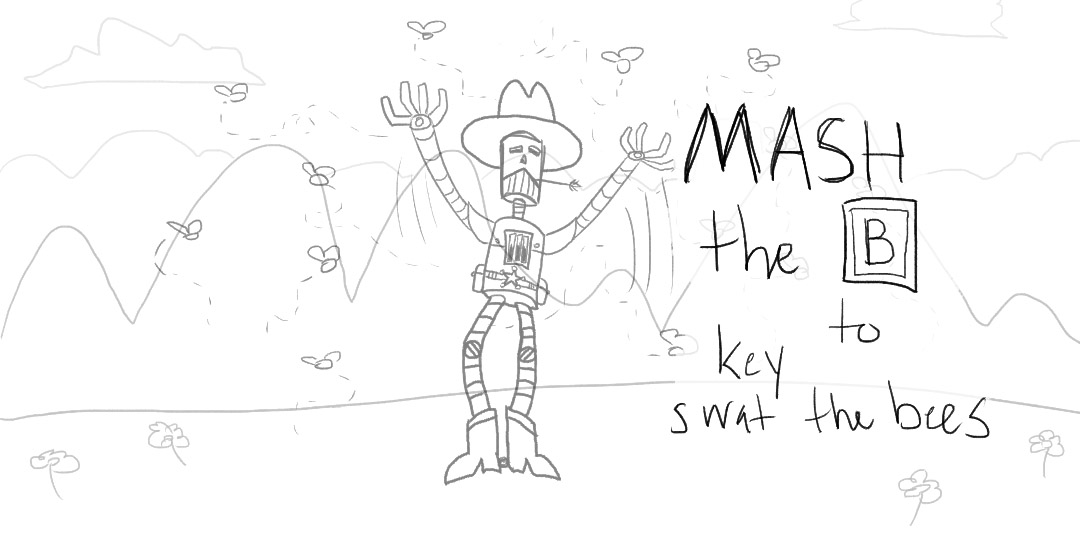 MASH
the B
key to
swat the bees